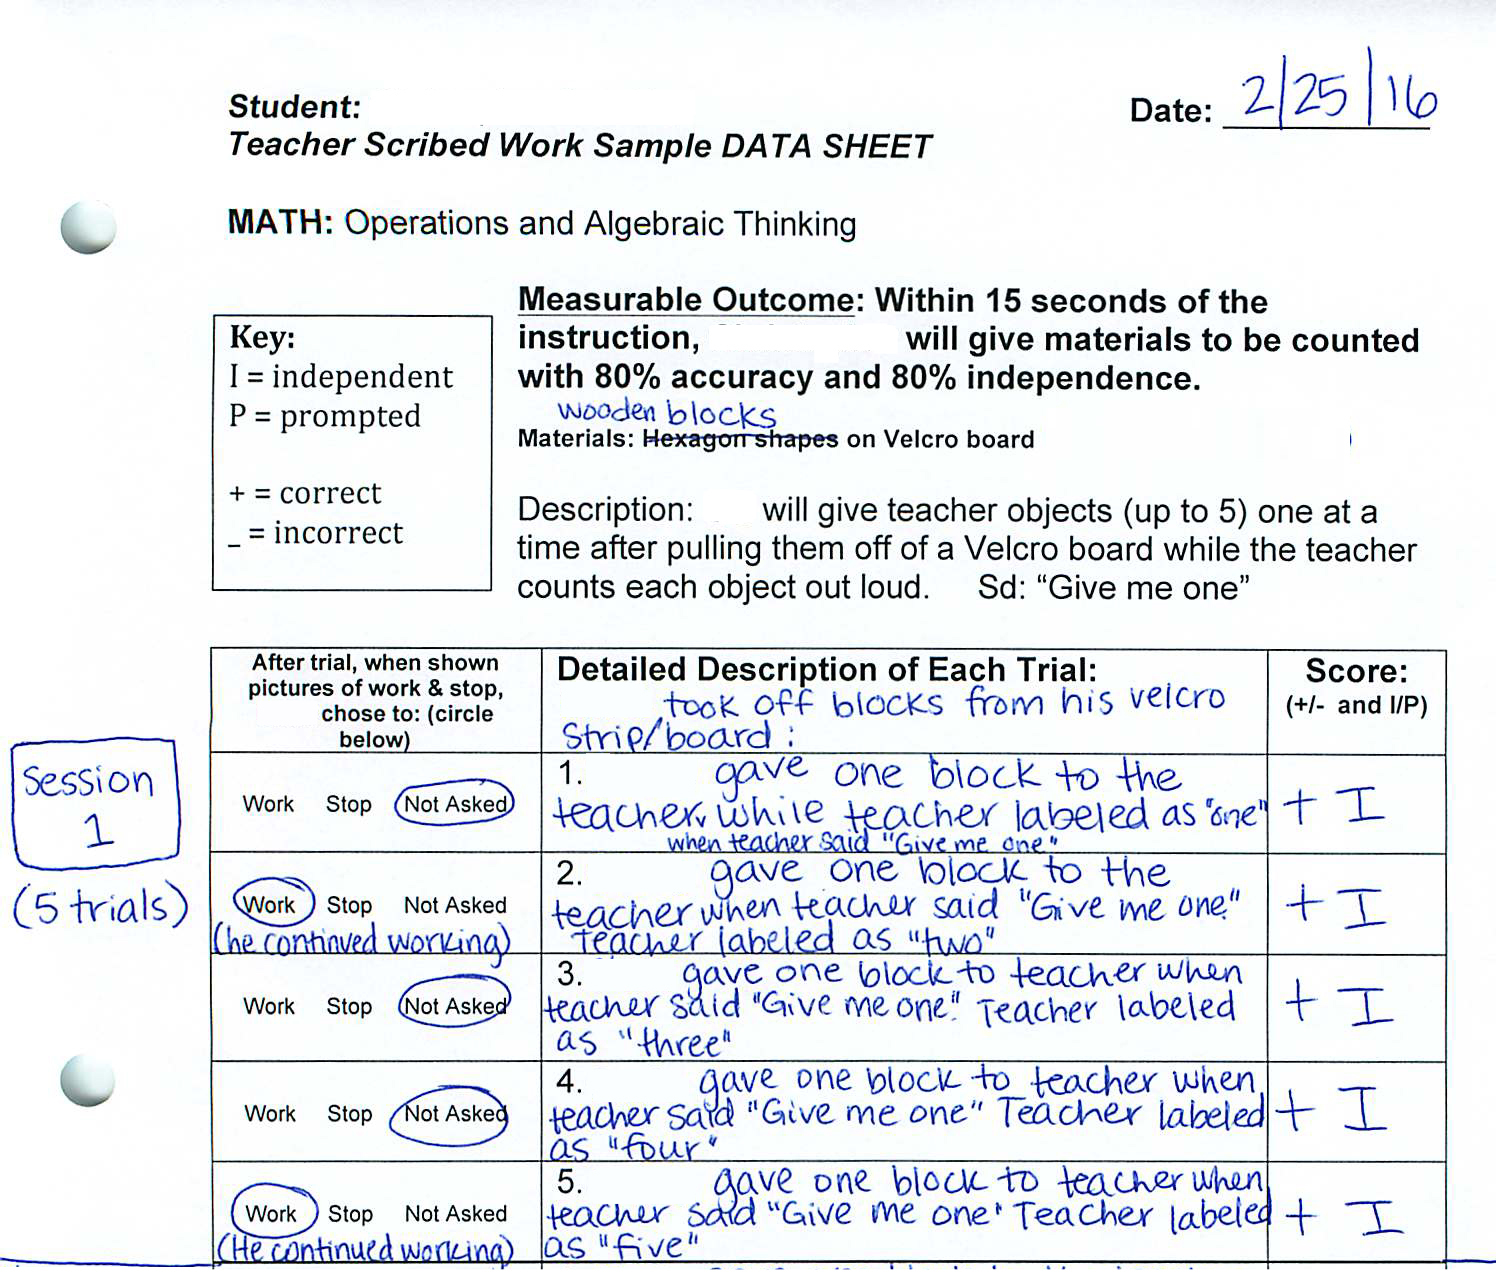 Student:
Date: 2/25/16
Teacher Scribed Work Sample DATA SHEET
MATH: Operations and Algebraic Thinking
Key:
I = independent
P = prompted
+ = correct
_ = incorrect
Measurable Outcome: Within 15 seconds of the
instruction, will give materials to be counted
with 80% accuracy and 80% independence.
wooden blocks
Materials: Hexagon shapes on Velcro board
Description: will give teacher objects (up to 5) one at a
time after pulling them off of a Velcro board while the teacher
counts each object out loud. Sd: “Give me one”
After trial, when shown
pictures of work & stop,
chose to: (circle
below)
Detailed Description of Each Trial:
took off blocks from his velcro
strip/board:
Score:
(+/- and I/P)
Session
1
(5 trials)
Work Stop Not Asked
1. gave one block to the
teacher, while teacher labeled as "one"
when teacher said "Give me one"
+ I
Work Stop Not Asked
(he continued working)
2. gave one block to the
teacher when teacher said "Give me one."
Teacher labeled as "two"
+ I
Work Stop Not Asked
3. gave one block to teacher when
teacher said "Give me one." Teacher labeled
as "three"
+ I
Work Stop Not Asked
4. gave one block to teacher when
teacher said "Give me one" Teacher labeled
as "four"
+ I
Work Stop Not Asked
(He continued working)
5. gave one block to teacher when
teacher said "Give me one" Teacher labeled
as "five"
+ I